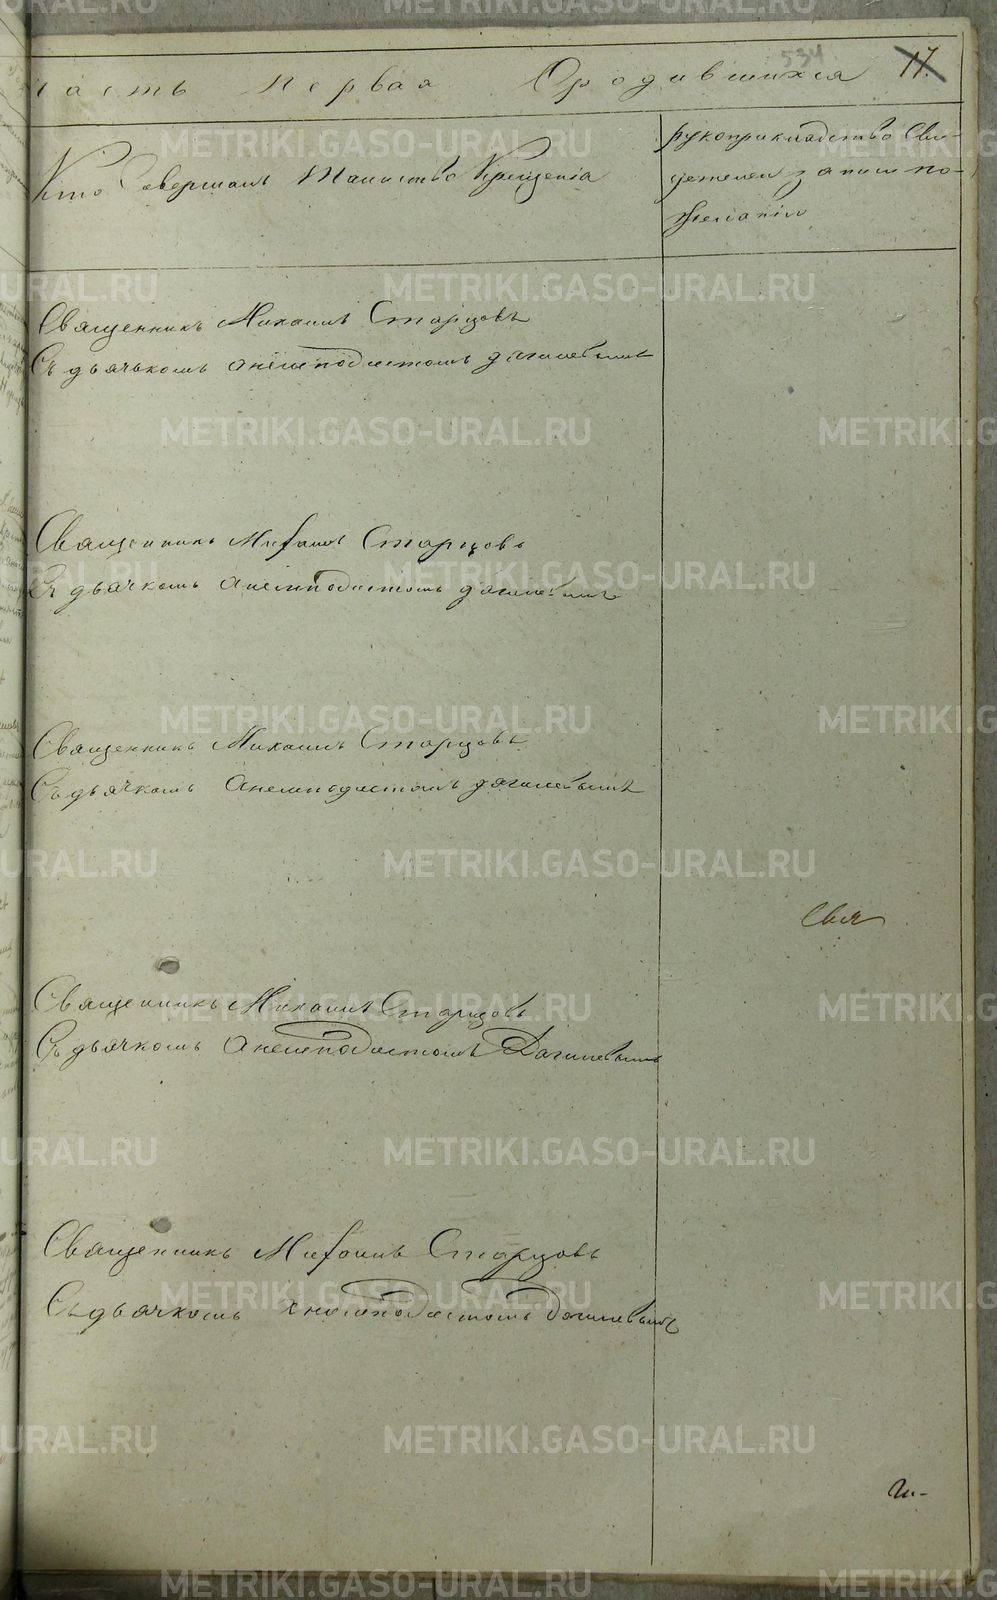 534 17.
Часть Первая О родившихся
Кто Совершалъ Таинство Крещенія
рукоприкладство сви-
детелей записи по
желанію
Священникъ Михаилъ Старцовъ
Съ дьячькомъ Анемподистомъ дягилевымъ
Священникъ Михаилъ Старцовъ
Съ дьячкомъ Анемподистомъ дягилевымъ
Священникъ Михаилъ Старцовъ
Съ дьячкомъ Анемподистомъ дягилевымъ
Свя
Священникъ Михаилъ Старцовъ
Съ дьячкомъ Анемподистомъ Дягилевымъ
Священникъ Михаилъ Старцовъ
Съ дьячкомъ Анемподистомъ Дягилевымъ
METRIKI.GASO-URAL.RU